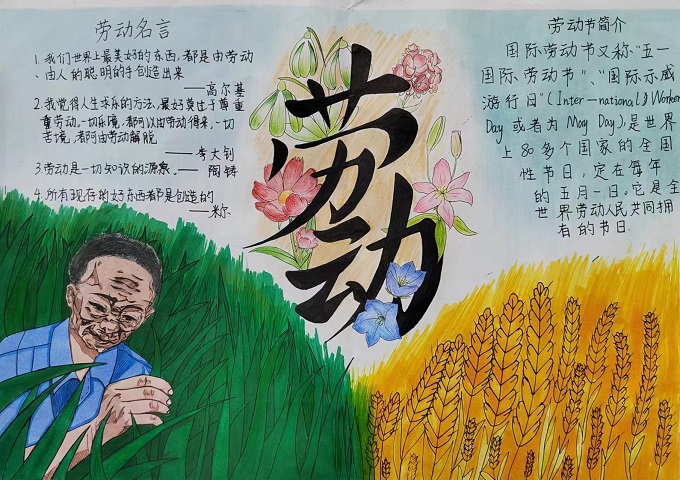 劳动名言
1.我们世界上最美好的东西,都是由劳动
、由人的聪明的手创造出来
——高尔基
2.我觉得人生求乐的方法,最好莫过于尊重
重劳动。一切乐境,者阿以由劳动得来,一切
苦境,者阿由劳动解脱
——李大钊
3.劳动是一切知识的源泉。——陶铸
4.所有现存的好东西都是创造的
——米尔
劳动
劳动节简介
国际劳动节又称“五一
国际劳动节”、“国际示威
游行日”(Inter—national) Worker
Day或者为May Day),是世界
上80多个国家的全国
性节日,定在每年
的五月一日。它是全
世界劳动人民共同拥
有的节日.